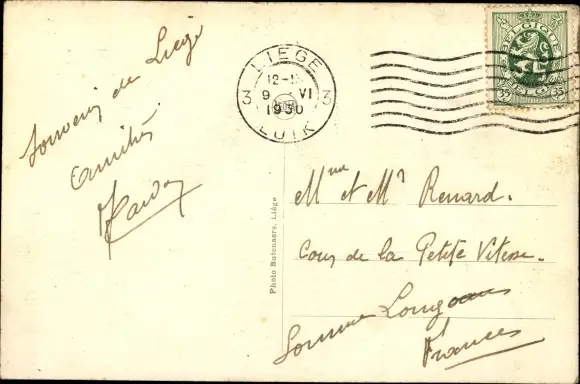 Souvenir de Liège
Amitiés
LIEGE
12-1
9 VI
1930
3 3
LUIK
BELGIQUE
BELGIË
35 35
Photo Butenaers, Liège
Mme et Mr Renard.
Cour de la Petite Vitesse.
Somme
France